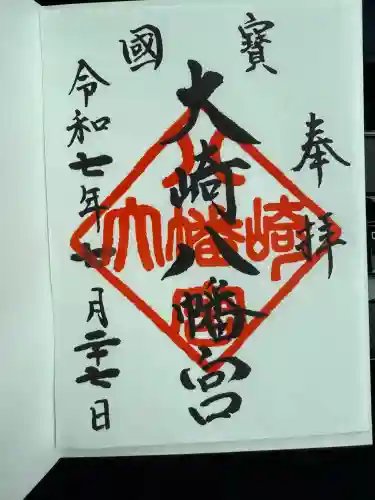 奉拝
國寶
大崎八幡宮
令和七年月二十七日
崎
大
幡